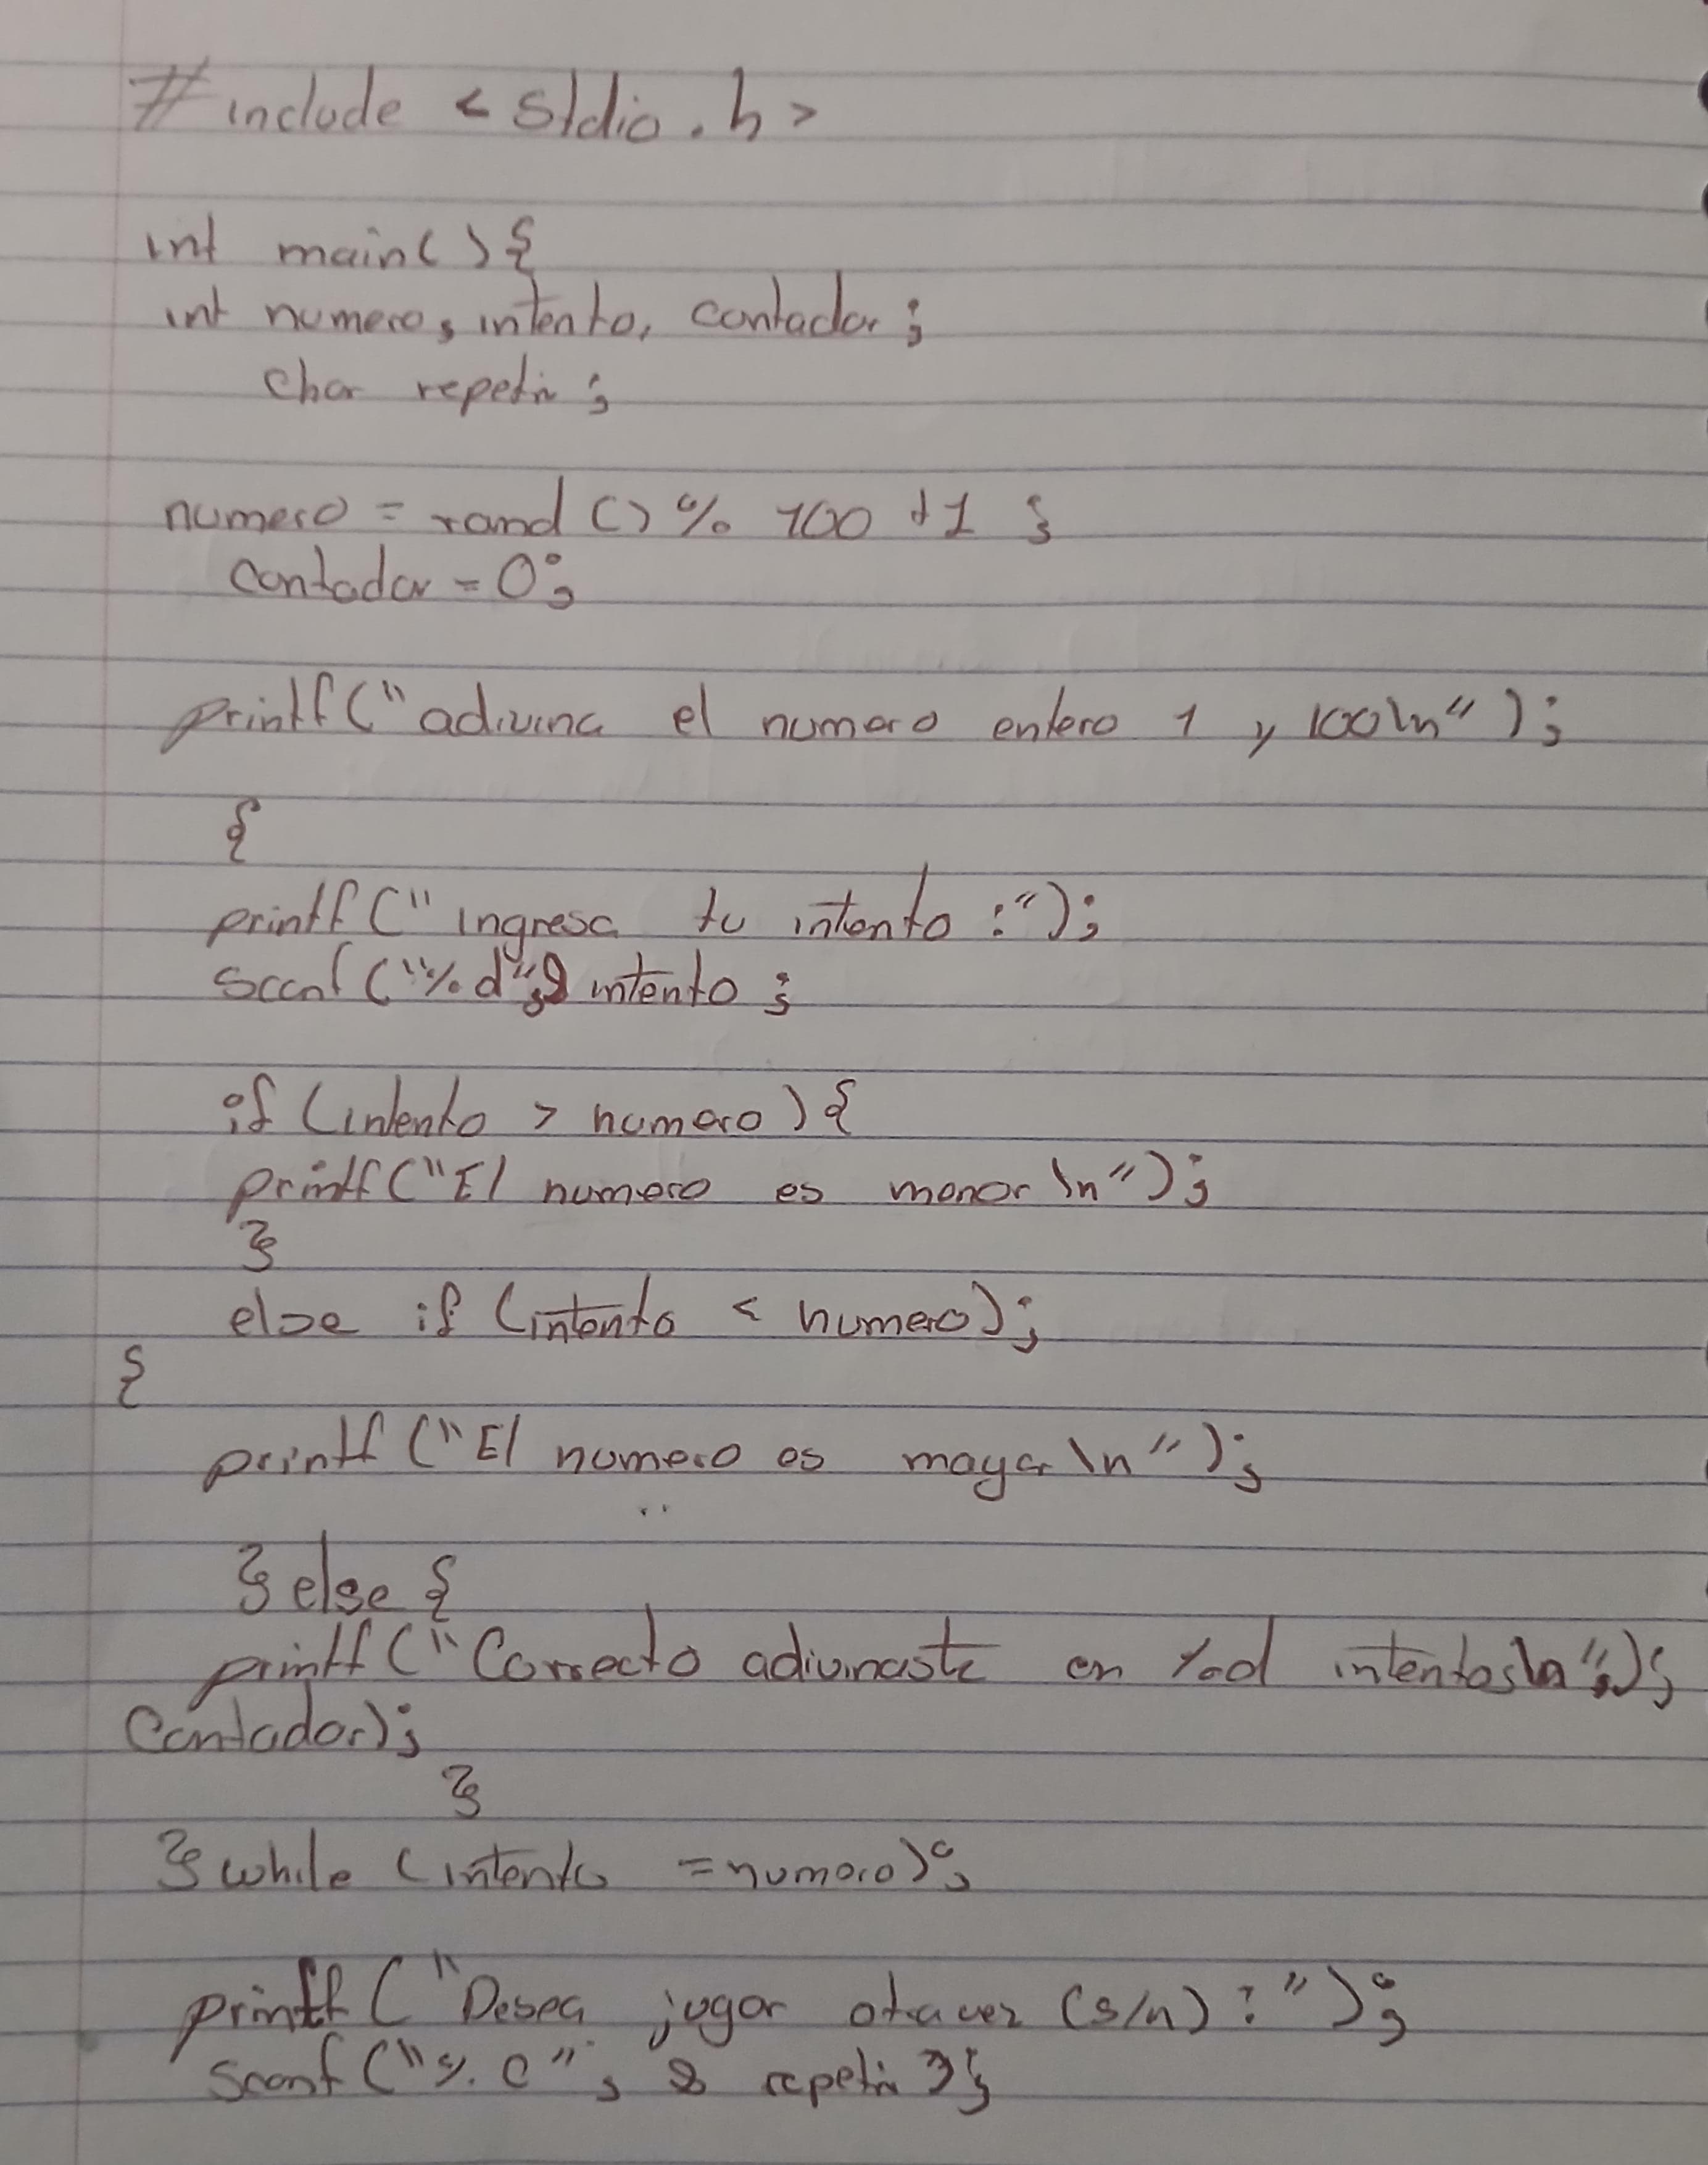 #include <stdio.h>
int main(){
int numero, intento, contador;
char repetir;
numero = rand()% 100 +1;
contador = 0;
printf("adivina el numero entero 1 y 100\n");
{
printf("ingresa tu intento :");
scanf("%d",& intento;
if (intento > numero){
printf("El numero es menor \n");
}
else if (intento < numero);
{
printf("El numero es mayor \n");
}else{
printf("Correcto adivinaste en %d intentos\n",);
Contador);
}
}while (intento =numero);
printf("Desea jugar otra vez (s/n) : ");
scanf("%c", & repetir);